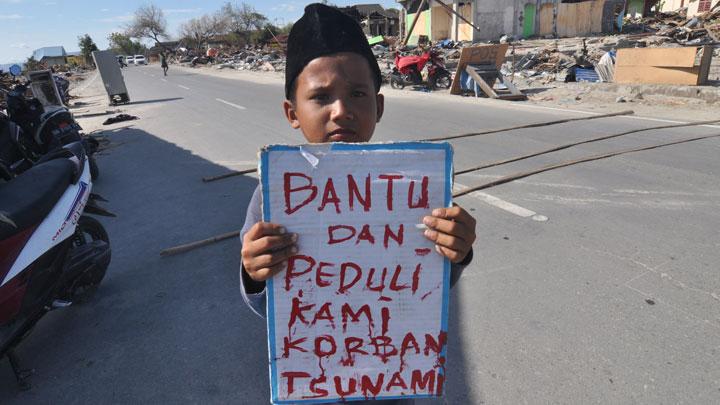 BANTU
DAN
PEDULI
KAMI
KORBAN
TSUNAMI